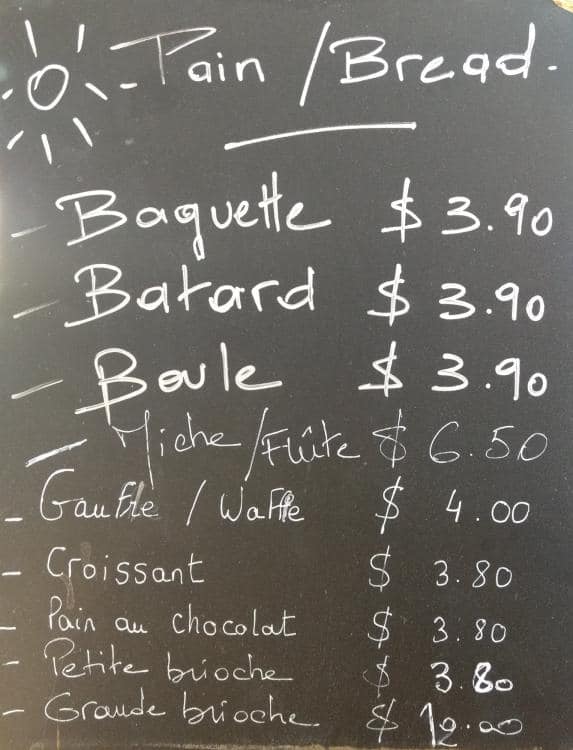 Pain / Bread.
- Baguette $ 3.90
- Batard $ 3.90
- Boule $ 3.90
- Miche/Flûte $ 6.50
- Gaufre / Waffle $ 4.00
- Croissant $ 3.80
- Pain au chocolat $ 3.80
- Petite brioche $ 3.80
- Grande brioche. $ 12.00